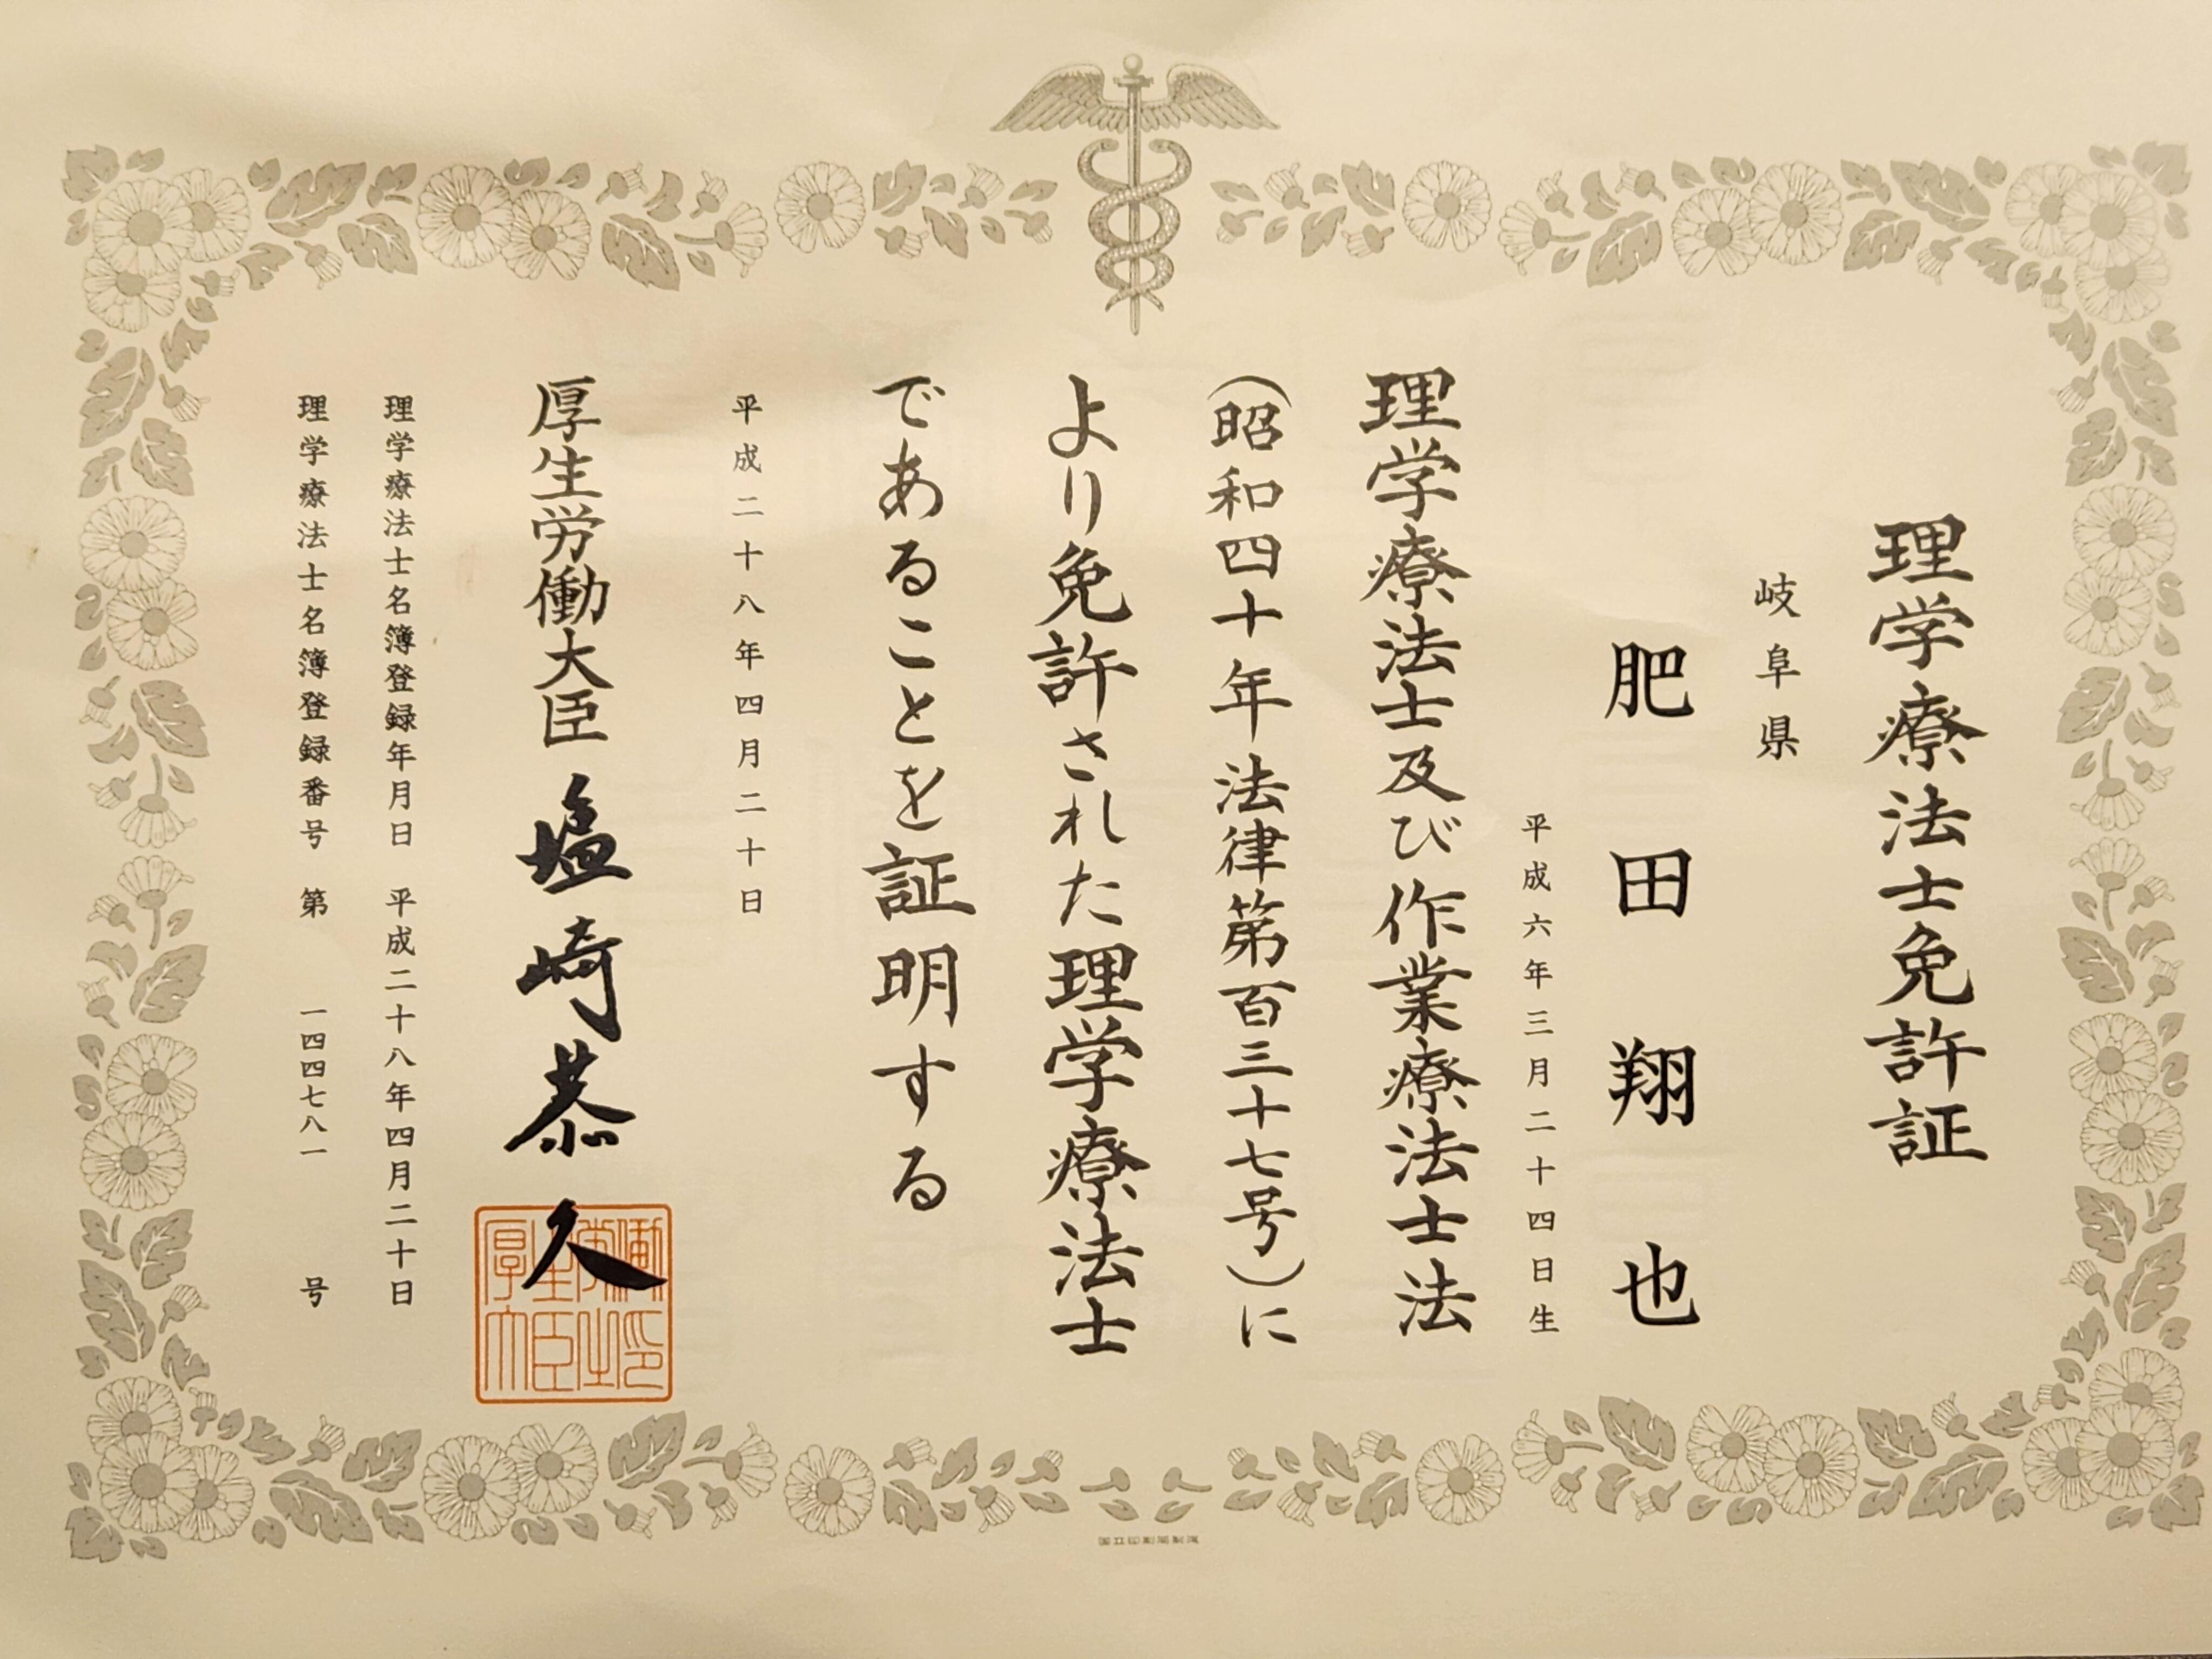 理学療法士免許証
岐阜県
肥田翔也
平成六年三月二十四日生
理学療法士及び作業療法士法
（昭和四十年法律第百三十七号）に
より免許された理学療法士
であることを証明する
平成二十八年四月二十日
厚生労働大臣 塩崎恭久
厚生労働大臣之印
理学療法士名簿登録年月日 平成二十八年四月二十日
理学療法士名簿登録番号 第 一四四七八一 号
国立印刷局製造